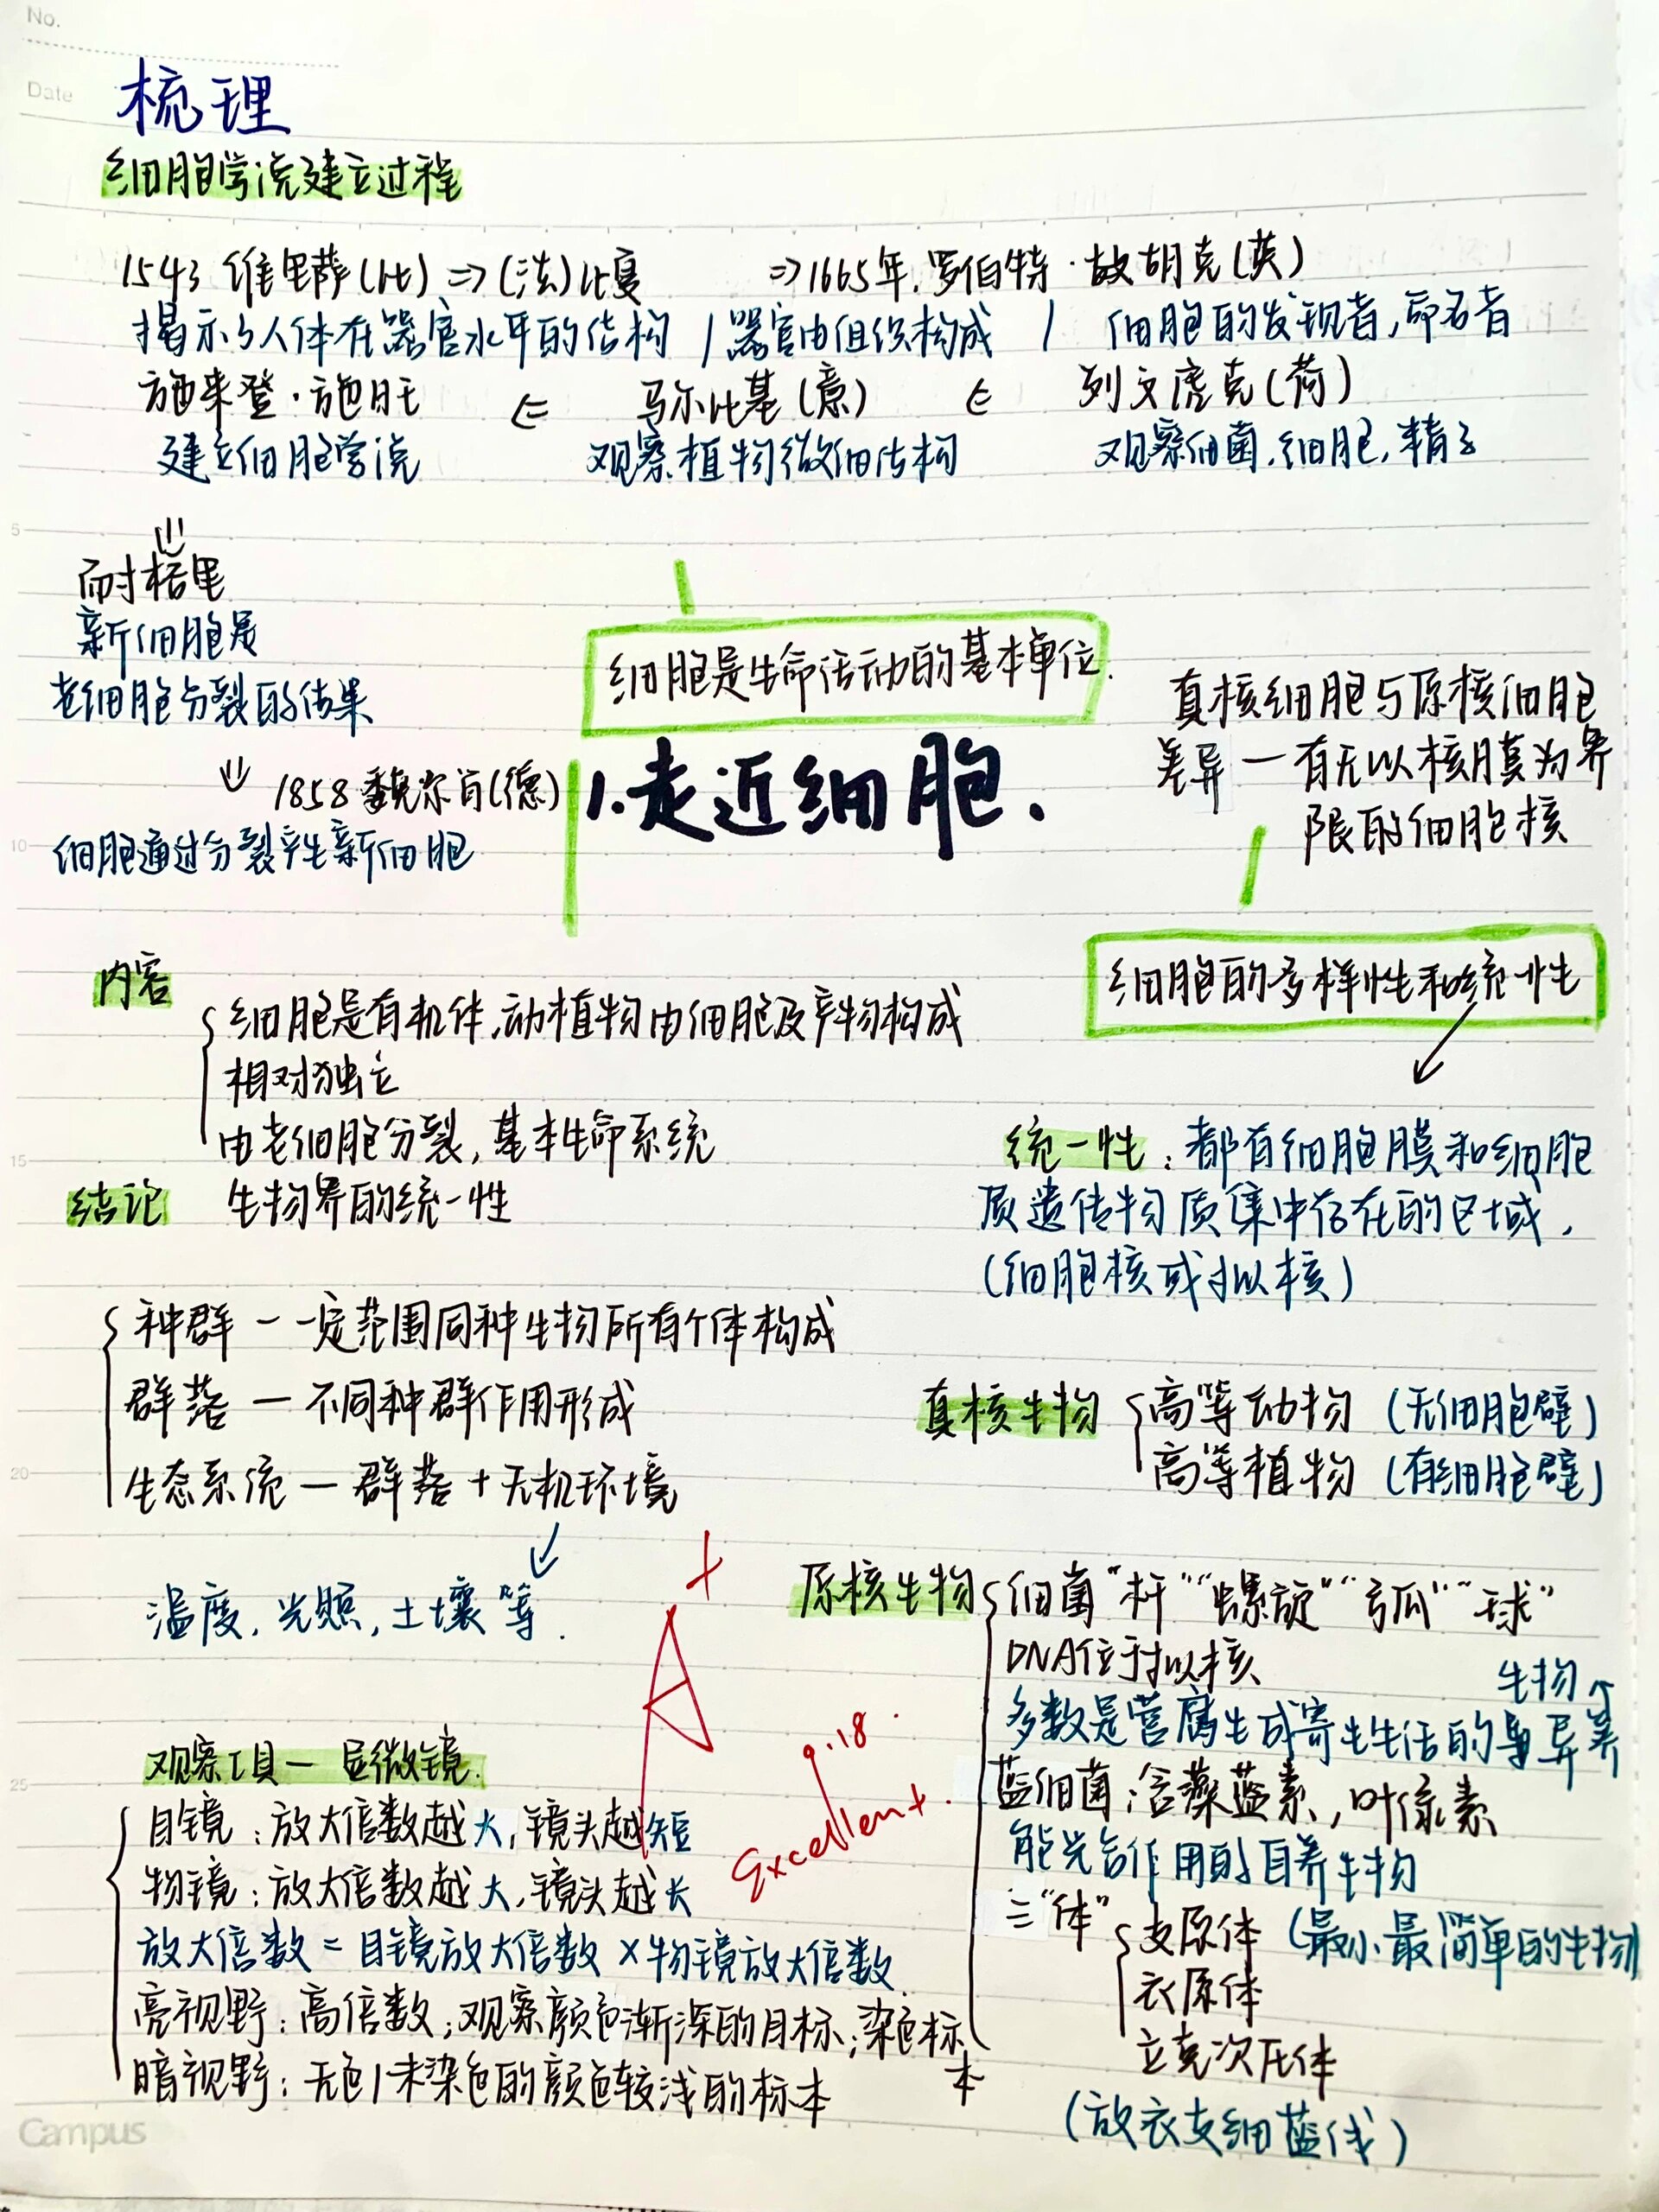 No.
Date
梳理
细胞学说建立过程
1543 维里萨(比) => (法)比夏 => 1665年.罗伯特·胡克(英)
揭示了人体在器官水平的结构 / 器官由组织构成 / 细胞的发现者,命名者
施来登·施旺 <= 马尔比基(意) <= 列文虎克(荷)
建立细胞学说 观察植物微细结构 观察细菌.细胞,精子
耐格里
新细胞是
老细胞分裂的结果
1858 魏尔肖(德)
细胞通过分裂产生新细胞
细胞是生命活动的基本单位.
1.走近细胞.
真核细胞与原核细胞
差异 — 有无以核膜为界
限的细胞核
细胞的多样性和统一性
内容
细胞是有机体,动植物由细胞及产物构成
相对独立
由老细胞分裂,基本生命系统
结论 生物界的统一性
统一性:都有细胞膜和细胞
质遗传物质集中存在的区域,
(细胞核或拟核)
种群 — 一定范围同种生物所有个体构成
群落 — 不同种群作用形成
生态系统 — 群落 + 无机环境
温度,光照,土壤等.
真核生物 高等动物 (无细胞壁)
高等植物 (有细胞壁)
原核生物 细菌 “杆”“螺旋”“弧”“球”
DNA位于拟核
生物
多数是营腐生或寄生生活的异养
蓝细菌:含藻蓝素,叶绿素
能光合作用的自养生物
三“体” 支原体 (最小最简单的生物)
衣原体
立克次氏体
(放衣支细蓝线)
A+
9.18.
Excellent.
观察工具 — 显微镜.
目镜:放大倍数越大,镜头越短
物镜:放大倍数越大,镜头越长
放大倍数 = 目镜放大倍数 × 物镜放大倍数.
亮视野:高倍数;观察颜色渐深的目标;染色标
本
暗视野:无色/未染色的颜色较浅的标本
5
10
15
20
25
Campus